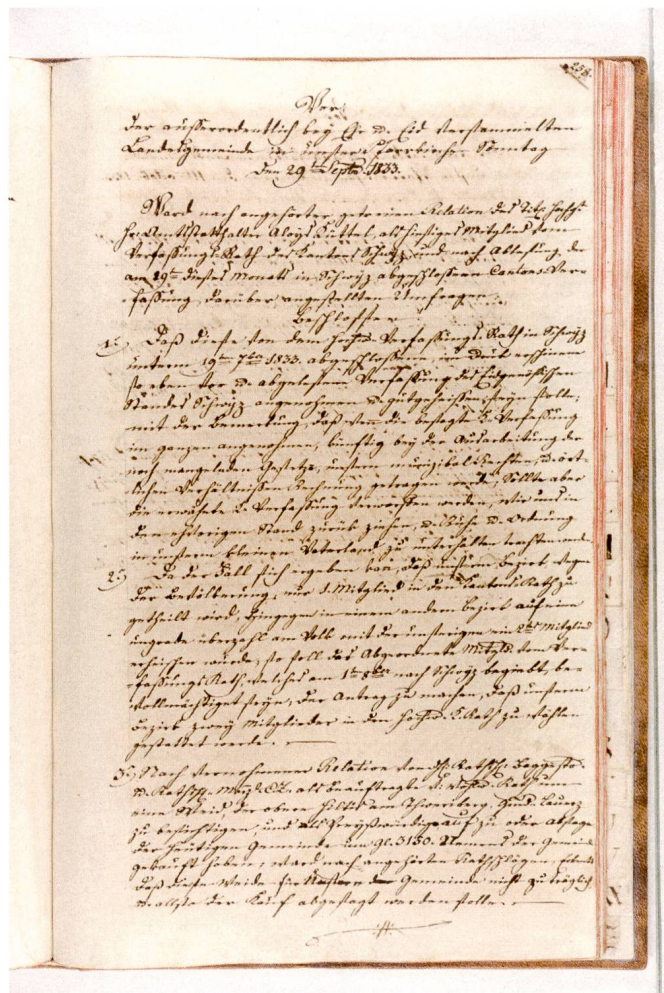 258.
Vor
der ausserordentlich bey Ehr u. Eid versammelten
Landesgemeinde in unserer Pfarrkirche Sonntag
Den 29ten Septr. 1833.
Ward nach angehörter getreuen Relation des Titl.
Hr. Amtsstatthalter Aloys Küttel, als hiesiges Mitglied vom
Verfassungs-Rath des Kantons Schwyz, und nach Ablesung der
am 19ten dieses Monats in Schwyz abgeschlossenen Cantons-Ver-
fassung, darüber angestellten Umfragen
beschlossen
1. Daß diese von dem Verfassungs-Rath in Schwyz
unterm 19ten 7ber 1833. abgeschlossene, in Druck erschienene
so eben vor u. abgelesene Verfassung des Eidgenössischen
Standes Schwyz angenommen u. gutgeheissen seyn solle;
mit der Bemerkung, daß wenn die besagte K. Verfassung
im ganzen angenommen, künftig bey der Ausarbeitung der
noch mangelnden Gesetze, unsern munizipal Rechten, u. ört-
lichen Verhältnissen Rechnung getragen werde; Sollte aber
die erwähnte K. Verfassung verworfen werden, wir uns in
den Stand zurück ziehen, u. Ruhe u. Ordnung
in unserm kleinen Vaterland zu unterhalten trachten
2. Da der Fall sich ergeben kann, daß unserm Bezirk wegen
der Bevölkerung, nur 1. Mitglied in den Kantons-Rath zu
getheilt wird, hingegen in einem andern Bezirk auf eine
ungrade überzahl am Volk mit der unsrigen ein 2tes Mitglied
würde, so soll das Abgeordnete Mitgld. vom Ver-
fassungs-Rath, welches am 1ten 8ber nach Schwyz begiebt, be-
vollmächtiget seyn, den Antrag zu machen, daß unserm
Bezirk zwey Mitglieder in den K. Rath zu wählen
gestattet werde.
3. Nach vernohmener Relation von
u. als beauftragte
eine Weid, der obere
zu besichtigen, und auf zu oder absage
der heutigen Gemeinde um Gl. 3150. Namens der Gemeind
gekauft haben, ward nach angehörten Rathschlägen
daß diese Weide für der Gemeinde nicht zuträglich
u. also der Kauf abgesagt werden solle.